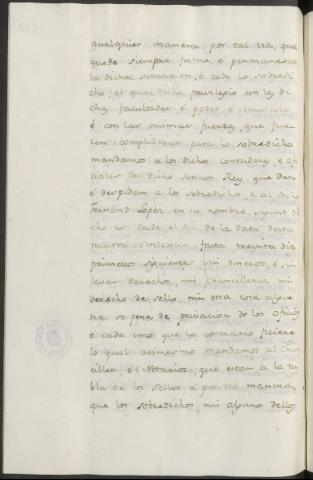 qualquier manera por tal via, que
quede siempre firme, é permanesca
la dicha situacion, é todo lo sobredi
cho, el qual dicho privilegio con la di
cha facultades é poder, é clausula
é con las mismas fuerzas, que fue
ren complideras para lo sobredicho
mandamos a los dichos contadores e ofi
ciales del dicho Señor Rey, que den
é despidan a los sobredichos, e al dicho
Fernand Lopez en su nombre, segunt di
cho es desde el dia de la data desta
nuestra sentencia fasta treynta dias
primeros siguientes sin dineros, é sin
levar derechos, nin Chancilleria nin
derecho de sello, nin otra cosa algu
na so pena de privacion de los oficios
é cada uno que lo contrario ficiere
lo qual asimesmo mandamos al Chan
ciller, é Notarios, que estan a la ta
bla de los sellos é por tal manera,
que los sobredichos, nin alguno dellos